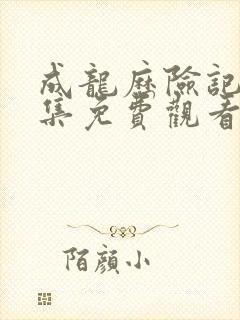 成龍歷險記
集免費觀看
陌顏小